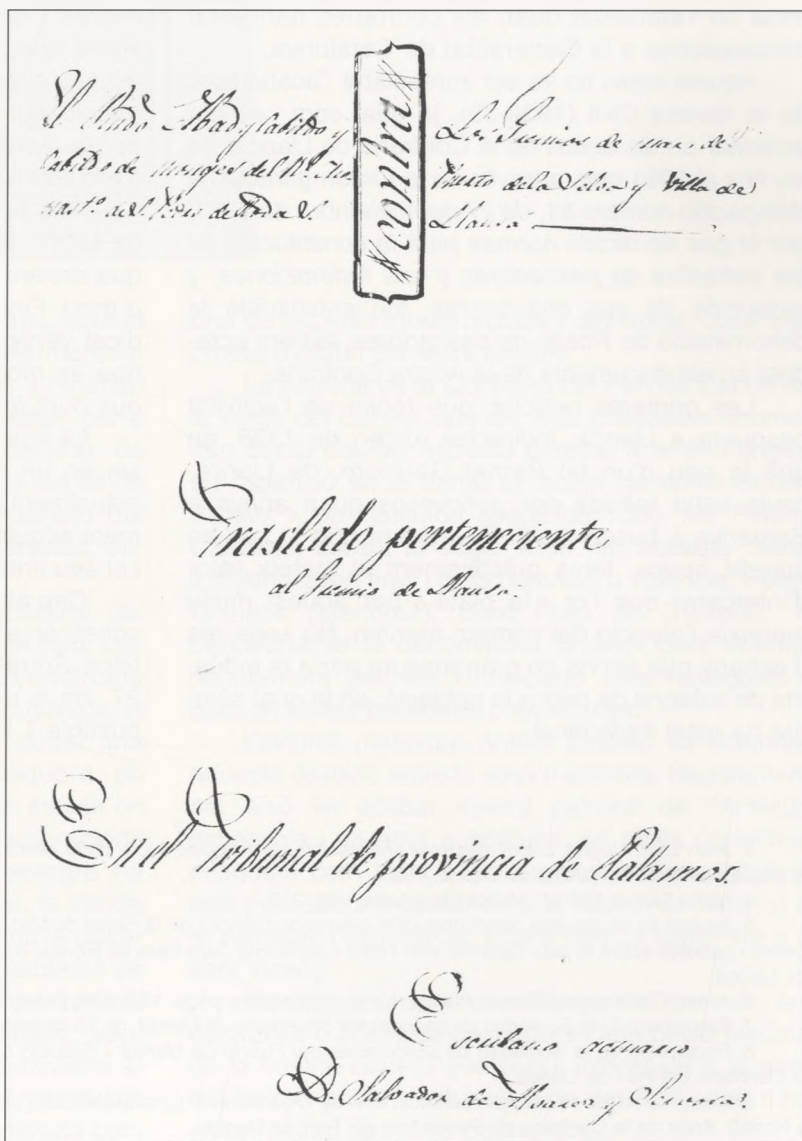 El Rndo Abad y Cabildo y
Cabildo de monges del Rl. Mo
nastº. de S. Pedro de Roda
Contra
Los Gremios de mar, de
Puerto de la Selva y Villa de
Llansa
Traslado pertenenciente
al Gremio de Llansa.
En el Tribunal de provincia de Palamos.
Escribano actuario
D. Salvador de